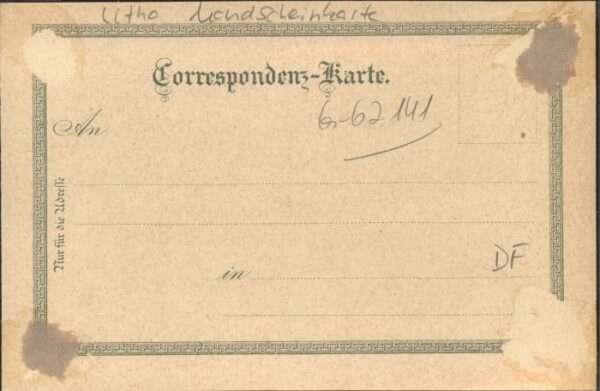 Litho Mondscheinkarte
Correspondenz-Karte.
6-62141
An
Nur für die Adresse
in
DF